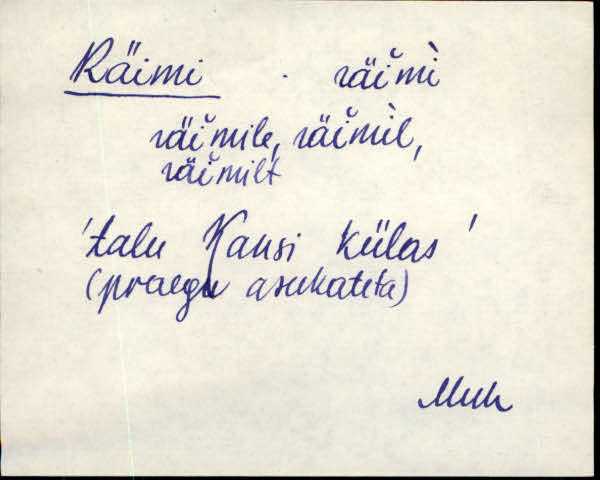 Räimi räĭmì
räĭmile, räĭmìl,
räĭmilt
'talu Kansi külas'
(praegu asukateta)
Muh